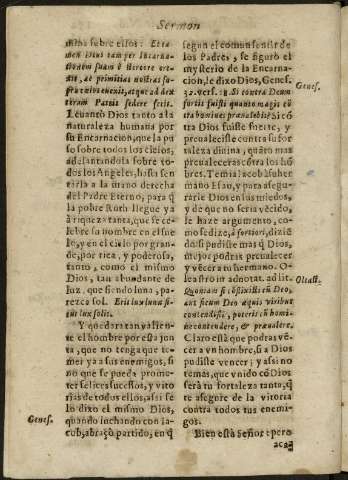 Sermon
Leuantò Dios tanto a la
naturaleza humana por
su Encarnacion, que la pu
so sobre todos los cielos,
adelantandola sobre to-
dos los Angeles, hasta sen
tarla a la mano derecha
del Padre Eterno, para q̃
la pobre Ruth llegue ya
à riqueza tanta, que se ce
lebre su nombre en el sue
lo, y en el cielo por gran-
de, por rica, y poderosa,
tanto, como el mismo
Dios, tan abundante de
luz, que siendo luna, pa-
rezca sol. Erit lux lunæ si-
cut lux solis.
Y quedarà tan valien-
te el hombre por esta jun
ta, que no tenga que te-
mer ya a sus enemigos, si
no que se pueda prome-
ter felices sucessos, y vito
rias de todos ellos, assi se
lo dixo el mismo Dios,
quando luchando con Ia-
cob, abraçò partido, en q̃
Genes.
segun el comun sentir de
los Padres, se figurò el
mysterio de la Encarna-
cion, le dixo Dios, Genes.
32. vers. 28. Si contra Deum
fortis fuisti quanto magis cõ
tra homines prænalebis? Si cõ
tra Dios fuiste fuerte, y
preualeciste contra su for
taleza diuina, quãto mas
preualeceras cõtra los hõ
bres. Temia Iacob à su her
mano Esau, y para assegu-
rarle Dios en sus miedos,
y de que no seria vẽcido,
le haze argumento, co-
mo se dize, à fortiori, diziẽ
do si pudiste mas q̃ Dios,
mejor podràs preualecer
y vẽcer a tu hermano. O-
leastro in adnotat. ad lit.
contendisti, poteris cũ homi-
ne contendere, & præualere.
Claro està que podras vẽ-
cer a vn hombre, si a Dios
pudiste vencer; y assi no
temas, que vnido cõ Dios
serà tu fortaleza tanto, q̃
te assegure de la vitoria
contra todos tus enemi-
gos.
Bien està Señor: pero
Genes.
Oleast.